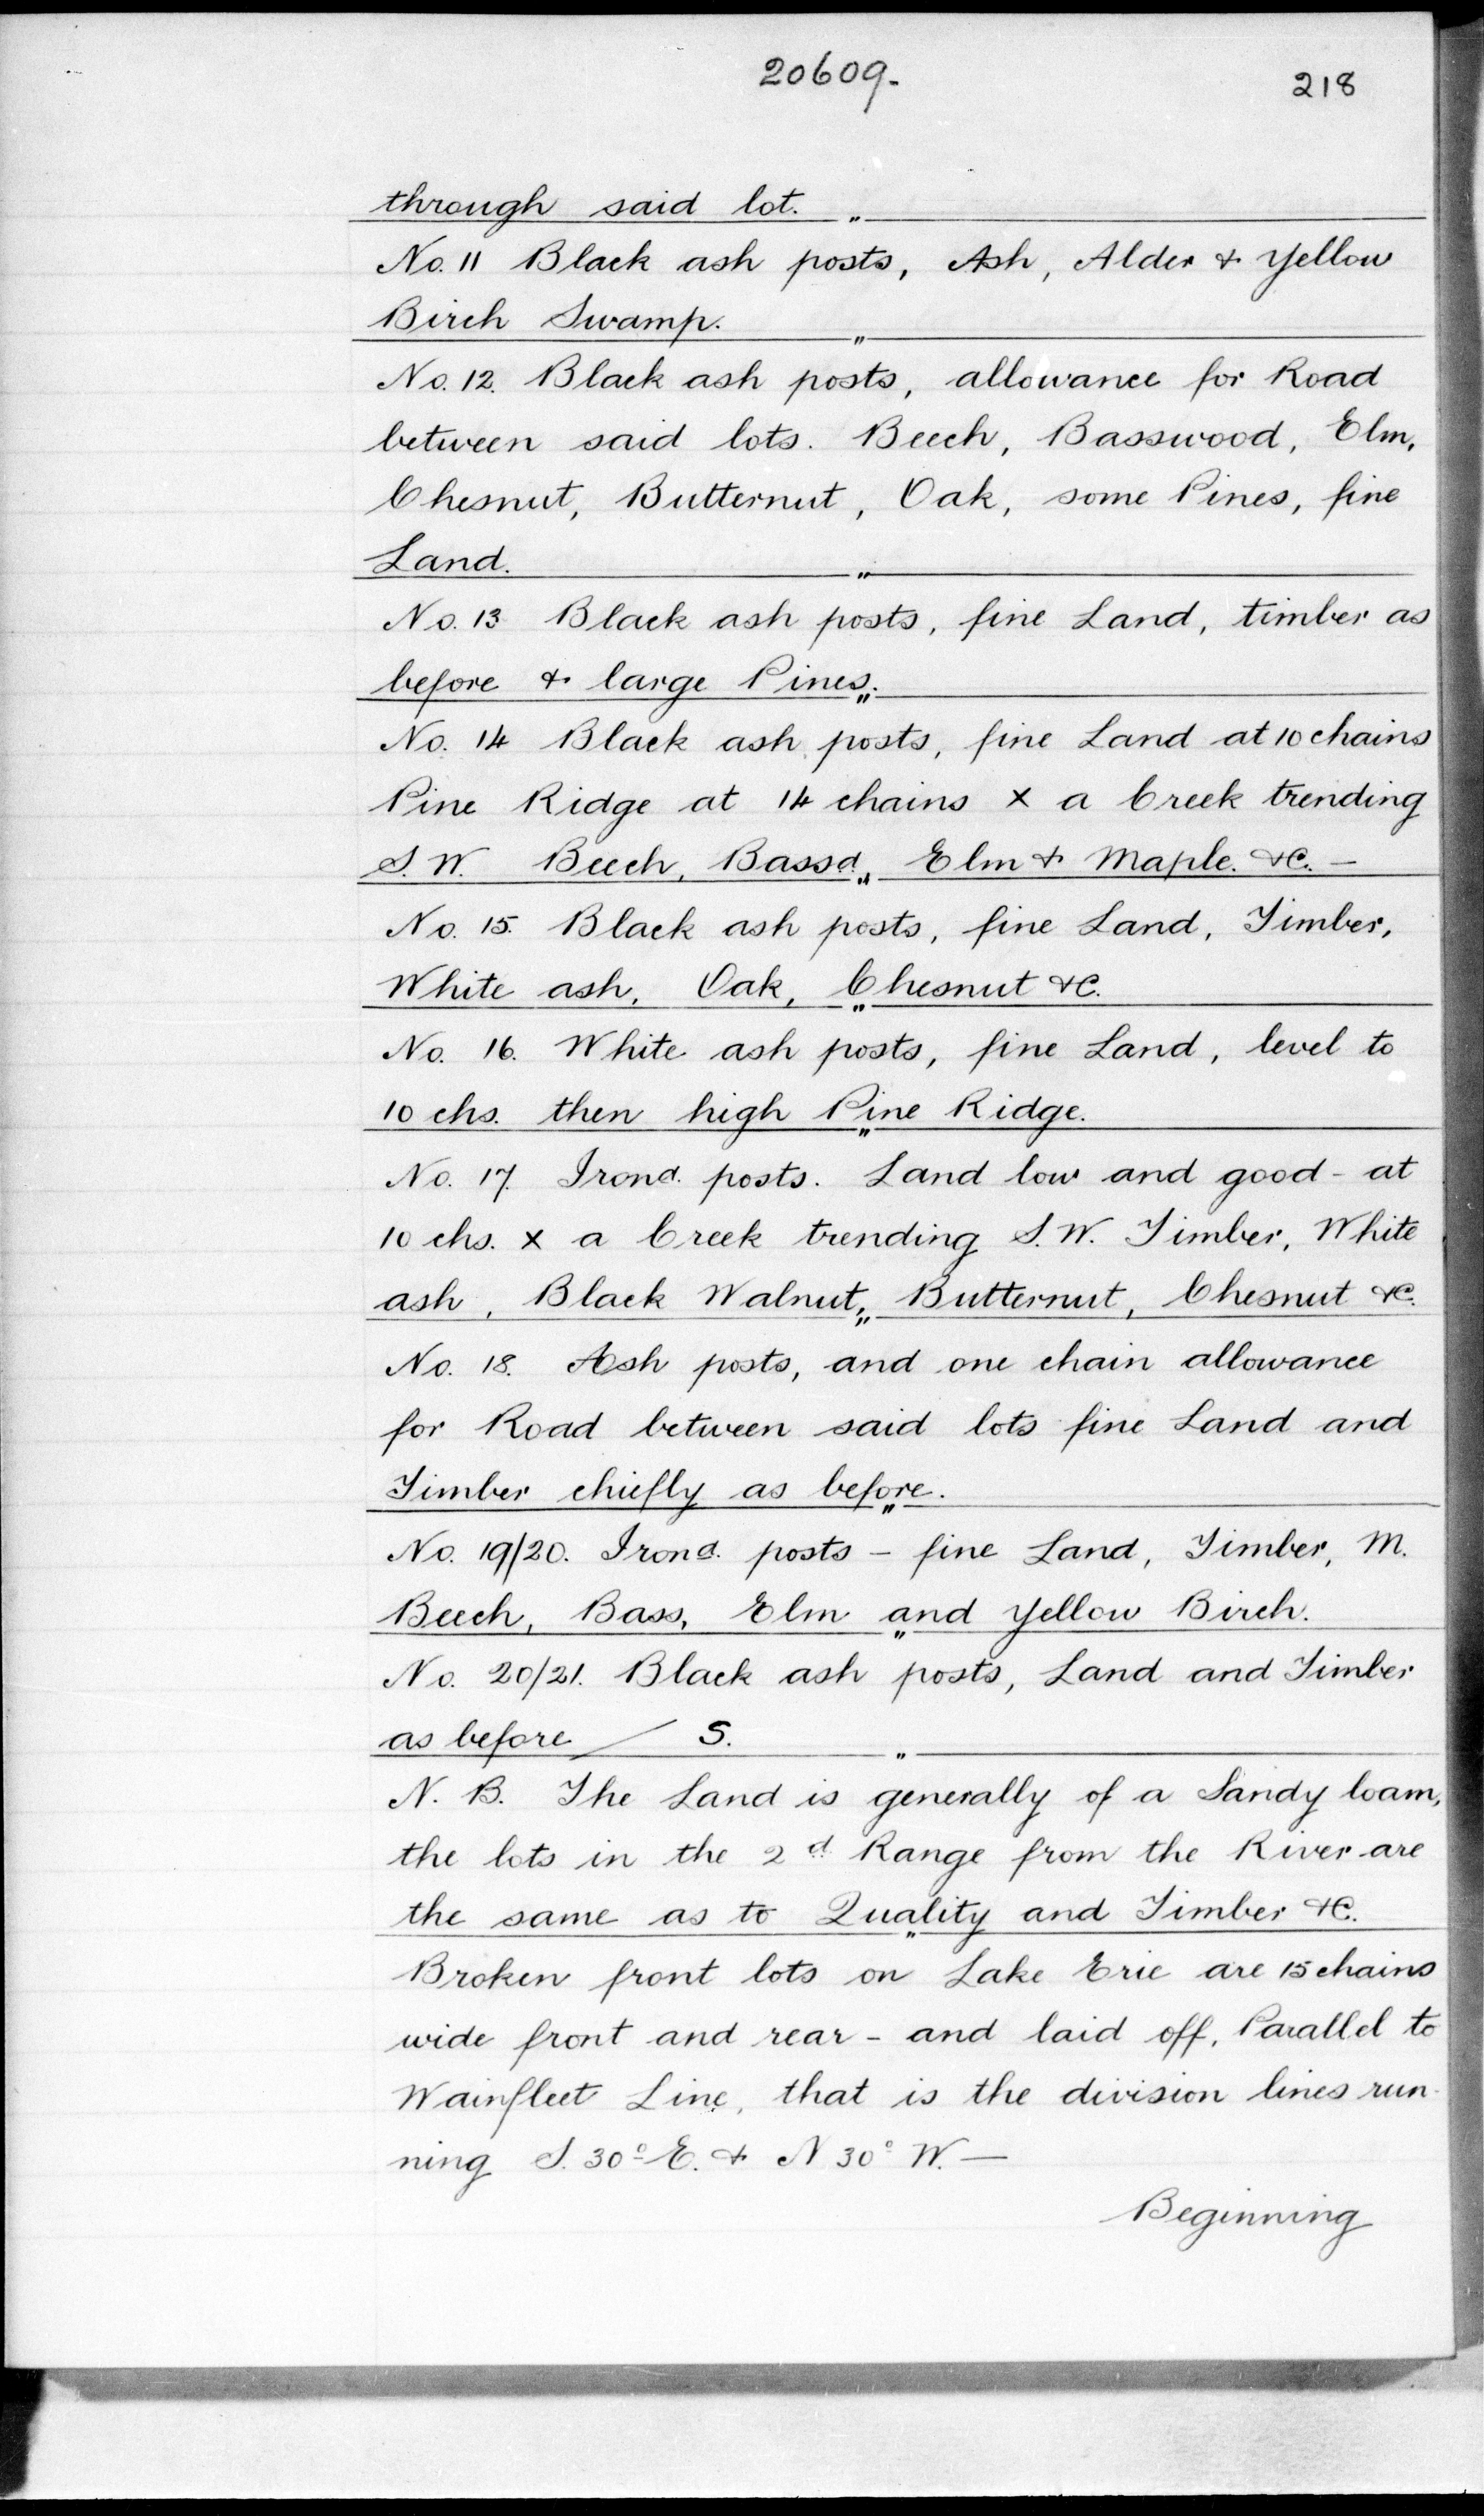 20609.
218
through said lot. "
No. 11 Black ash posts, Ash, Alder & Yellow
Birch Swamp. "
No. 12. Black ash posts, allowance for Road
between said lots. Beech, Basswood, Elm,
Chesnut, Butternut, Oak, some Pines, fine
Land. "
No. 13 Black ash posts, fine Land, timber as
before & large Pines. "
No. 14 Black ash posts, fine Land at 10 chains
Pine Ridge at 14 chains x a Creek trending
S. W. Beech, Bassd., Elm & Maple. &C. —
No. 15. Black ash posts, fine Land, Timber,
White ash, Oak, Chesnut &C. "
No. 16. White ash posts, fine Land, level to
10 chs. then high Pine Ridge. "
No. 17. Irond. posts. Land low and good - at
10 chs. x a Creek trending S. W. Timber, White
ash, Black Walnut, Butternut, Chesnut &C. "
No. 18. Ash posts, and one chain allowance
for Road between said lots fine Land and
Timber chiefly as before. "
No. 19/20. Irond. posts - fine Land, Timber, M.
Beech, Bass, Elm and Yellow Birch. "
No. 20/21. Black ash posts, Land and Timber
as before / S. "
N. B. The Land is generally of a Sandy loam,
the lots in the 2d. Range from the River are
the same as to Quality and Timber &C. "
Broken front lots on Lake Erie are 15 chains
wide front and rear - and laid off, Parallel to
Wainfleet Line, that is the division lines run-
ning S. 30° E. & N 30° W. —
Beginning